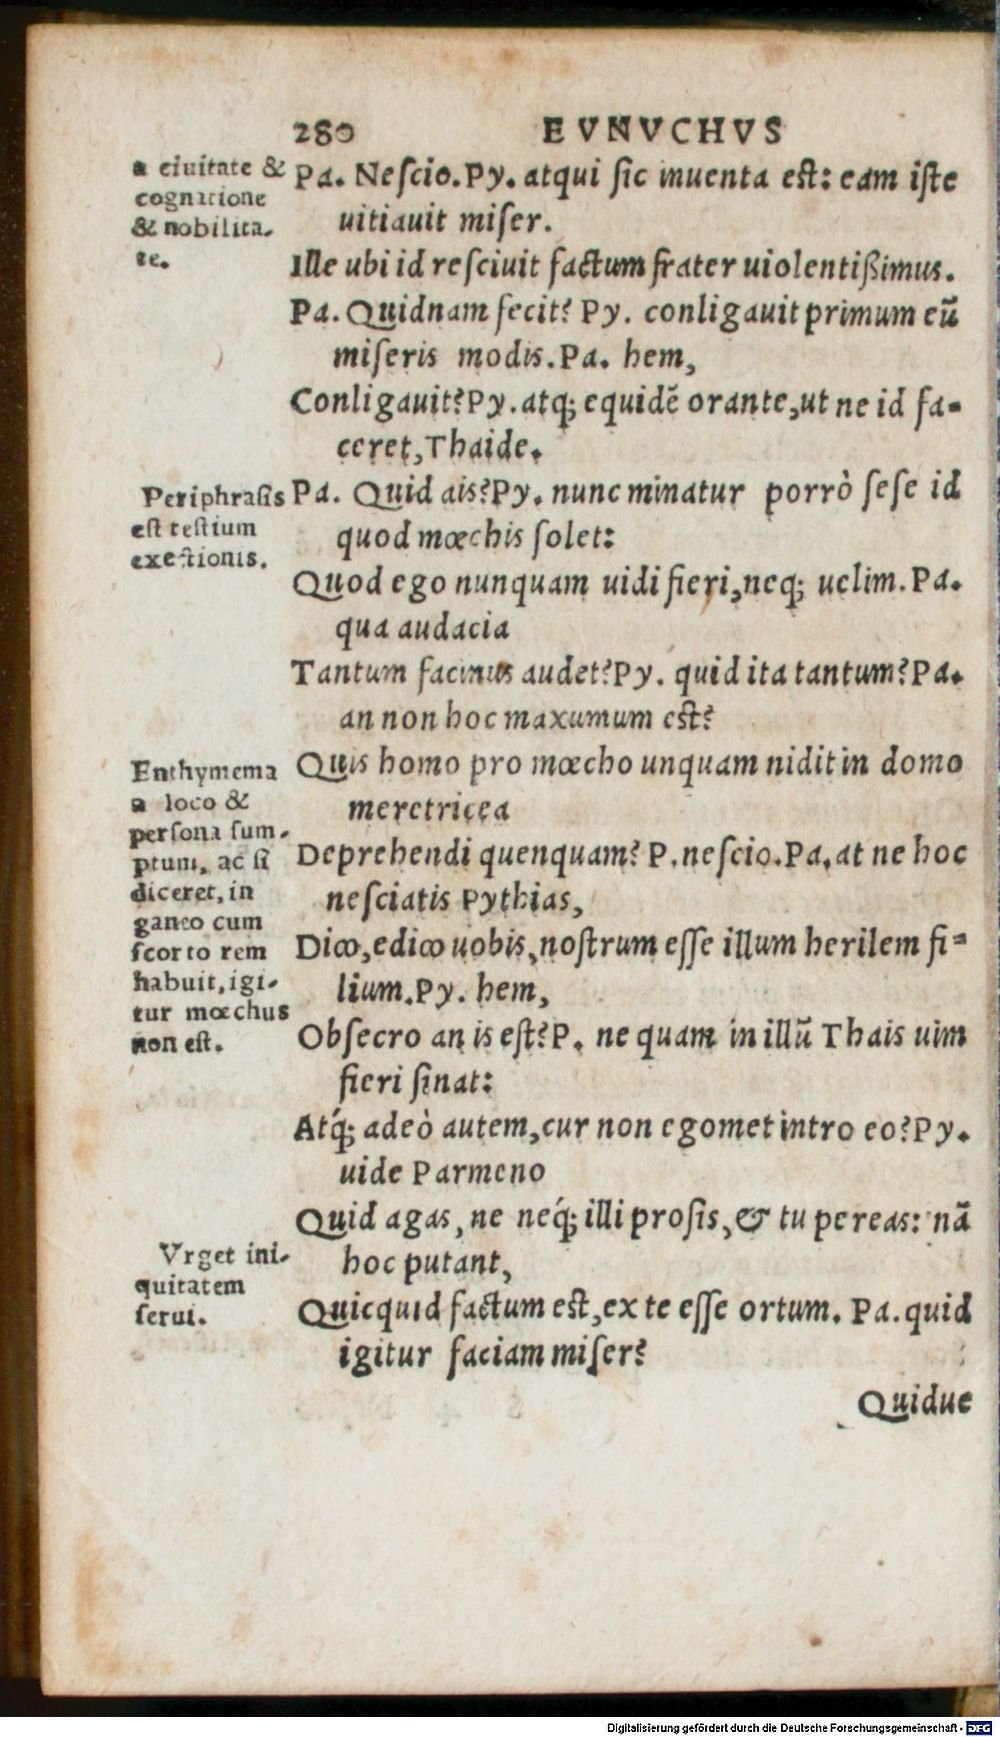 280 EVNVCHVS
a ciuitate &
cognatione
& nobilita-
te.
Pa. Nescio. Py. atqui sic inuenta est: eam iste
uitiauit miser.
Ille ubi id resciuit factum frater uiolentißimus.
Pa. Quidnam fecit? Py. conligauit primum eũ
miseris modis. Pa. hem,
Conligauit? Py. atq; equidẽ orante, ut ne id fa-
ceret, Thaide.
Periphrasis
est testium
exectionis.
Pa. Quid ais? Py. nunc minatur porrò sese id
quod mœchis solet:
Quod ego nunquam uidi fieri, neq; uelim. Pa.
qua audacia
Tantum facinus audet? Py. quid ita tantum? Pa.
an non hoc maxumum est?
Enthymema
a loco &
persona sum-
ptum, ac si
diceret, in
ganeo cum
scorto rem
habuit, igi-
tur mœchus
non est.
Quis homo pro mœcho unquam nidit in domo
meretricea
Deprehendi quenquam? P. nescio. Pa. at ne hoc
nesciatis Pythias,
Dico, edico uobis, nostrum esse illum herilem fi-
lium. Py. hem,
Obsecro an is est? P. ne quam in illũ Thais uim
fieri sinat:
Atq́; adeò autem, cur non egomet intro eo? Py.
uide Parmeno
Quid agas, ne neq́; illi prosis, & tu pereas: nã
hoc putant,
Vrget ini-
quitatem
serui.
Quicquid factum est, ex te esse ortum. Pa. quid
igitur faciam miser?
Quidue
Digitalisierung gefördert durch die Deutsche Forschungsgemeinschaft - DFG